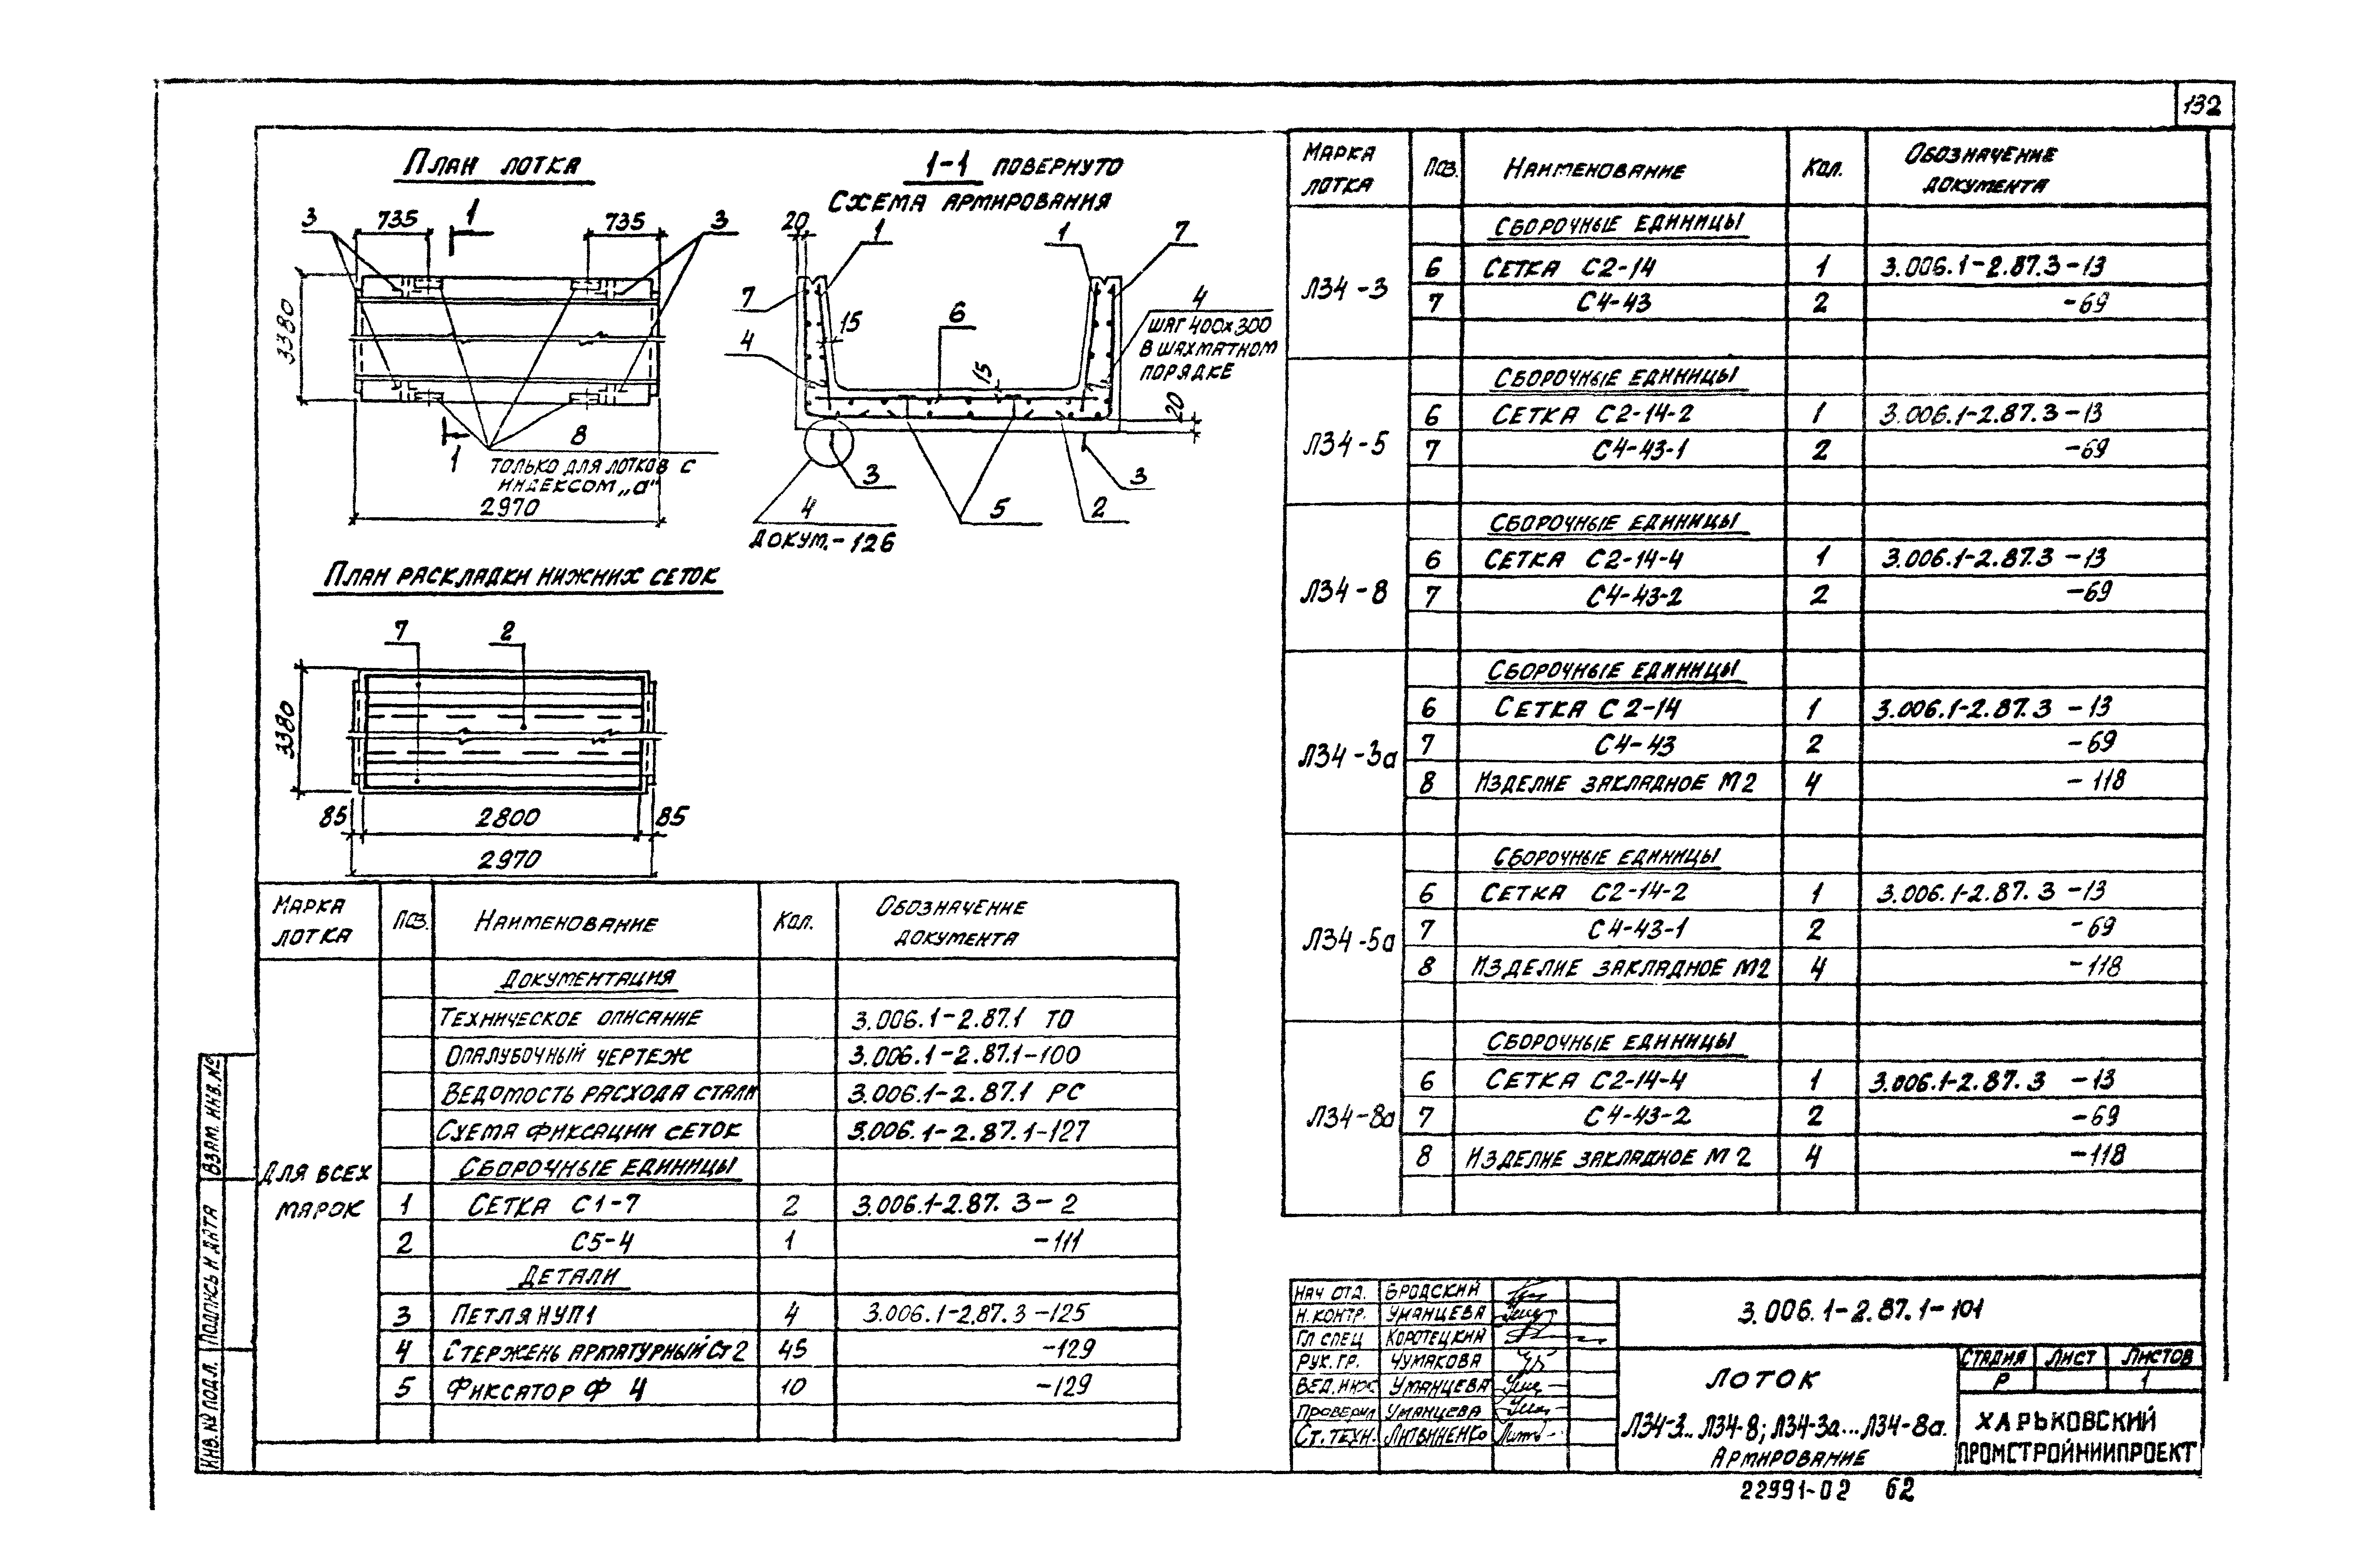 132
План лотка
3
735
1
735
3
3380
8
1
только для лотков с
индексом „а"
2970
1-1 повернуто
Схема армирования
20
1
1
7
7
15
6
4
4
шаг 400х300
в шахматном
порядке
15
20
3
3
4
5
2
Докум.-126
План раскладки нижних сеток
7
2
3380
85
2800
85
2970
Марка лотка | Поз. | Наименование | Кол. | Обозначение документа
Для всех марок
Документация
Техническое описание 3.006.1-2.87.1 ТО
Опалубочный чертеж 3.006.1-2.87.1-100
Ведомость расхода стали 3.006.1-2.87.1 РС
Схема фиксации сеток 3.006.1-2.87.1-127
Сборочные единицы
1 Сетка С1-7 2 3.006.1-2.87.3-2
2 С5-4 1 -111
Детали
3 Петля НУП1 4 3.006.1-2.87.3-125
4 Стержень арматурный Ст2 45 -129
5 Фиксатор Ф 4 10 -129
Марка лотка | Поз. | Наименование | Кол. | Обозначение документа
Л34-3
Сборочные единицы
6 Сетка С2-14 1 3.006.1-2.87.3-13
7 С4-43 2 -69
Л34-5
Сборочные единицы
6 Сетка С2-14-2 1 3.006.1-2.87.3-13
7 С4-43-1 2 -69
Л34-8
Сборочные единицы
6 Сетка С2-14-4 1 3.006.1-2.87.3-13
7 С4-43-2 2 -69
Л34-3а
Сборочные единицы
6 Сетка С2-14 1 3.006.1-2.87.3-13
7 С4-43 2 -69
8 Изделие закладное М2 4 -118
Л34-5а
Сборочные единицы
6 Сетка С2-14-2 1 3.006.1-2.87.3-13
7 С4-43-1 2 -69
8 Изделие закладное М2 4 -118
Л34-8а
Сборочные единицы
6 Сетка С2-14-4 1 3.006.1-2.87.3-13
7 С4-43-2 2 -69
8 Изделие закладное М2 4 -118
Нач отд. Бродский
Н.контр. Уманцева
Гл спец Коротецкий
Рук.гр. Чумакова
Вед.инж Уманцева
Проверил Уманцева
Ст.техн. Литвиненко
3.006.1-2.87.1-101
Лоток
Л34-3...Л34-8; Л34-3а...Л34-8а.
Армирование
Стадия Лист Листов
Р 1
Харьковский
Промстройниипроект
22991-02 62
Инв.№ подл. Подпись и дата Взам. инв.№